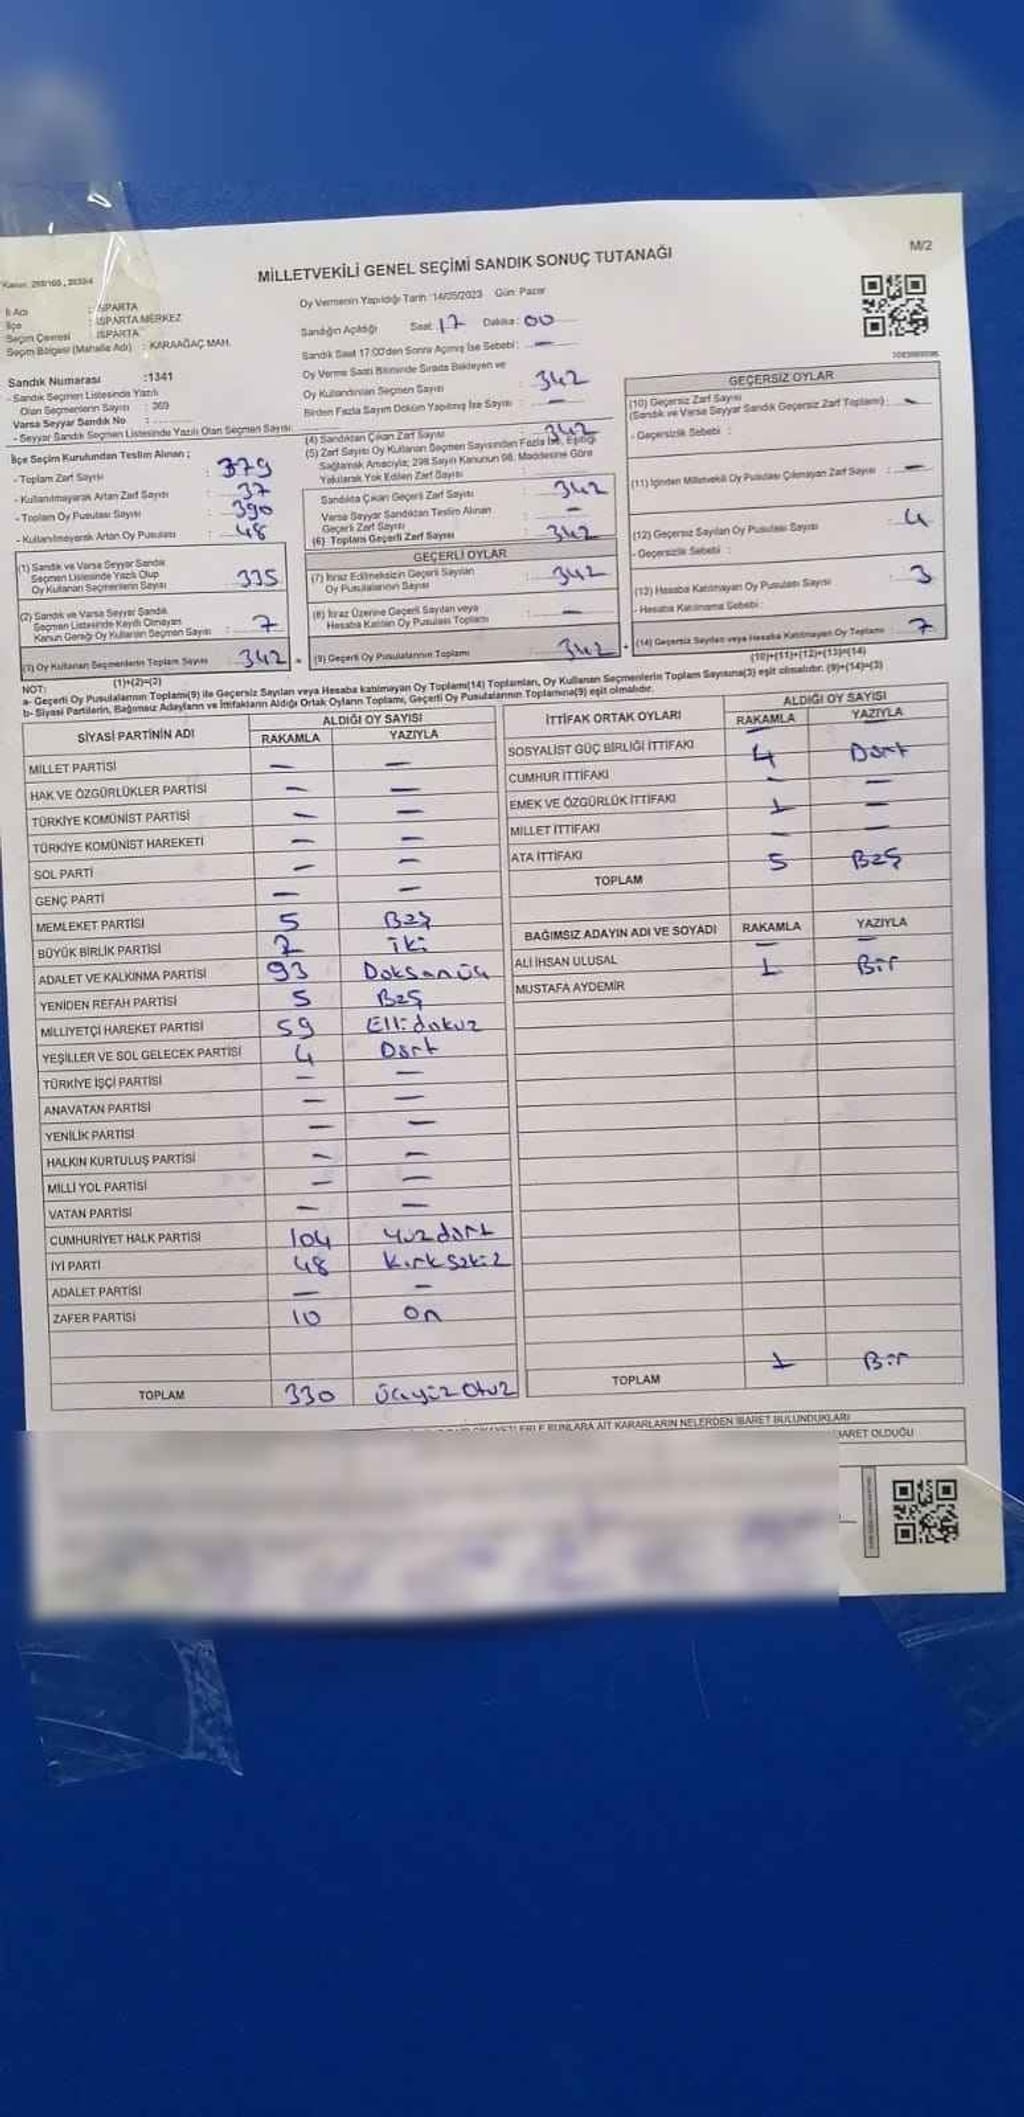 M/2
MİLLETVEKİLİ GENEL SEÇİMİ SANDIK SONUÇ TUTANAĞI
İl Adı : ISPARTA
İlçe : ISPARTA MERKEZ
Seçim Çevresi : ISPARTA
Seçim Bölgesi (Mahalle Adı) : KARAAĞAÇ MAH.
Sandık Numarası :1341
- Sandık Seçmen Listesinde Yazılı
Olan Seçmenlerin Sayısı : 369
Varsa Seyyar Sandık No :
- Seyyar Sandık Seçmen Listesinde Yazılı Olan Seçmen Sayısı:
Oy Vermenin Yapıldığı Tarih :14/05/2023 Gün: Pazar
Sandığın Açıldığı Saat: 17 Dakika: 00
Sandık Saat 17:00'den Sonra Açılmış İse Sebebi: —
Oy Verme Saati Bitiminde Sırada Bekleyen ve
Oy Kullandırılan Seçmen Sayısı : 342
Birden Fazla Sayım Döküm Yapılmış İse Sayısı : —
İlçe Seçim Kurulundan Teslim Alınan ;
- Toplam Zarf Sayısı : 379
- Kullanılmayarak Artan Zarf Sayısı : 37
- Toplam Oy Pusulası Sayısı : 390
- Kullanılmayarak Artan Oy Pusulası : 48
(1) Sandık ve Varsa Seyyar Sandık
Seçmen Listesinde Yazılı Olup
Oy Kullanan Seçmenlerin Sayısı : 335
(2) Sandık ve Varsa Seyyar Sandık
Seçmen Listesinde Kayıtlı Olmayan
Kanun Gereği Oy Kullanan Seçmen Sayısı : 7
(3) Oy Kullanan Seçmenlerin Toplam Sayısı : 342
(1)+(2)=(3)
(4) Sandıktan Çıkan Zarf Sayısı : 342
(5) Zarf Sayısı Oy Kullanan Seçmen Sayısından Fazla İse, Eşitliği
Sağlamak Amacıyla; 298 Sayılı Kanunun 98. Maddesine Göre
Yakılarak Yok Edilen Zarf Sayısı :
Sandıkta Çıkan Geçerli Zarf Sayısı : 342
Varsa Seyyar Sandıktan Teslim Alınan
Geçerli Zarf Sayısı : —
(6) Toplam Geçerli Zarf Sayısı : 342
GEÇERLİ OYLAR
(7) İtiraz Edilmeksizin Geçerli Sayılan
Oy Pusulalarının Sayısı : 342
(8) İtiraz Üzerine Geçerli Sayılan veya
Hesaba Katılan Oy Pusulası Toplamı : —
(9) Geçerli Oy Pusulalarının Toplamı : 342
GEÇERSİZ OYLAR
(10) Geçersiz Zarf Sayısı
(Sandık ve Varsa Seyyar Sandık Geçersiz Zarf Toplamı) : —
- Geçersizlik Sebebi :
(11) İçinden Milletvekili Oy Pusulası Çıkmayan Zarf Sayısı : —
(12) Geçersiz Sayılan Oy Pusulası Sayısı : 4
- Geçersizlik Sebebi :
(13) Hesaba Katılmayan Oy Pusulası Sayısı : 3
- Hesaba Katılmama Sebebi :
(14) Geçersiz Sayılan veya Hesaba Katılmayan Oy Toplamı : 7
(10)+(11)+(12)+(13)=(14)
NOT:
a- Geçerli Oy Pusulalarının Toplamı(9) ile Geçersiz Sayılan veya Hesaba katılmayan Oy Toplamı(14) Toplamları, Oy Kullanan Seçmenlerin Toplam Sayısına(3) eşit olmalıdır. (9)+(14)=(3)
b- Siyasi Partilerin, Bağımsız Adayların ve İttifakların Aldığı Ortak Oyların Toplamı, Geçerli Oy Pusulalarının Toplamına(9) eşit olmalıdır.
SİYASİ PARTİNİN ADI ALDIĞI OY SAYISI
RAKAMLA YAZIYLA
MİLLET PARTİSİ — —
HAK VE ÖZGÜRLÜKLER PARTİSİ — —
TÜRKİYE KOMÜNİST PARTİSİ — —
TÜRKİYE KOMÜNİST HAREKETİ — —
SOL PARTİ — —
GENÇ PARTİ — —
MEMLEKET PARTİSİ 5 Beş
BÜYÜK BİRLİK PARTİSİ 2 iki
ADALET VE KALKINMA PARTİSİ 93 Doksanüç
YENİDEN REFAH PARTİSİ 5 Beş
MİLLİYETÇİ HAREKET PARTİSİ 59 Ellidokuz
YEŞİLLER VE SOL GELECEK PARTİSİ 4 Dört
TÜRKİYE İŞÇİ PARTİSİ — —
ANAVATAN PARTİSİ — —
YENİLİK PARTİSİ — —
HALKIN KURTULUŞ PARTİSİ — —
MİLLİ YOL PARTİSİ — —
VATAN PARTİSİ — —
CUMHURİYET HALK PARTİSİ 104 Yüzdört
İYİ PARTİ 48 Kırksekiz
ADALET PARTİSİ — —
ZAFER PARTİSİ 10 On
TOPLAM 330 Üçyüz Otuz
İTTİFAK ORTAK OYLARI ALDIĞI OY SAYISI
RAKAMLA YAZIYLA
SOSYALİST GÜÇ BİRLİĞİ İTTİFAKI — —
CUMHUR İTTİFAKI 4 Dört
EMEK VE ÖZGÜRLÜK İTTİFAKI — —
MİLLET İTTİFAKI 1 —
ATA İTTİFAKI — —
TOPLAM 5 Beş
BAĞIMSIZ ADAYIN ADI VE SOYADI RAKAMLA YAZIYLA
ALİ İHSAN ULUSAL — —
MUSTAFA AYDEMİR 1 Bir
TOPLAM 1 Bir
BUNLARA AİT KARARLARIN NELERDEN İBARET BULUNDUKLARI
İBARET OLDUĞU